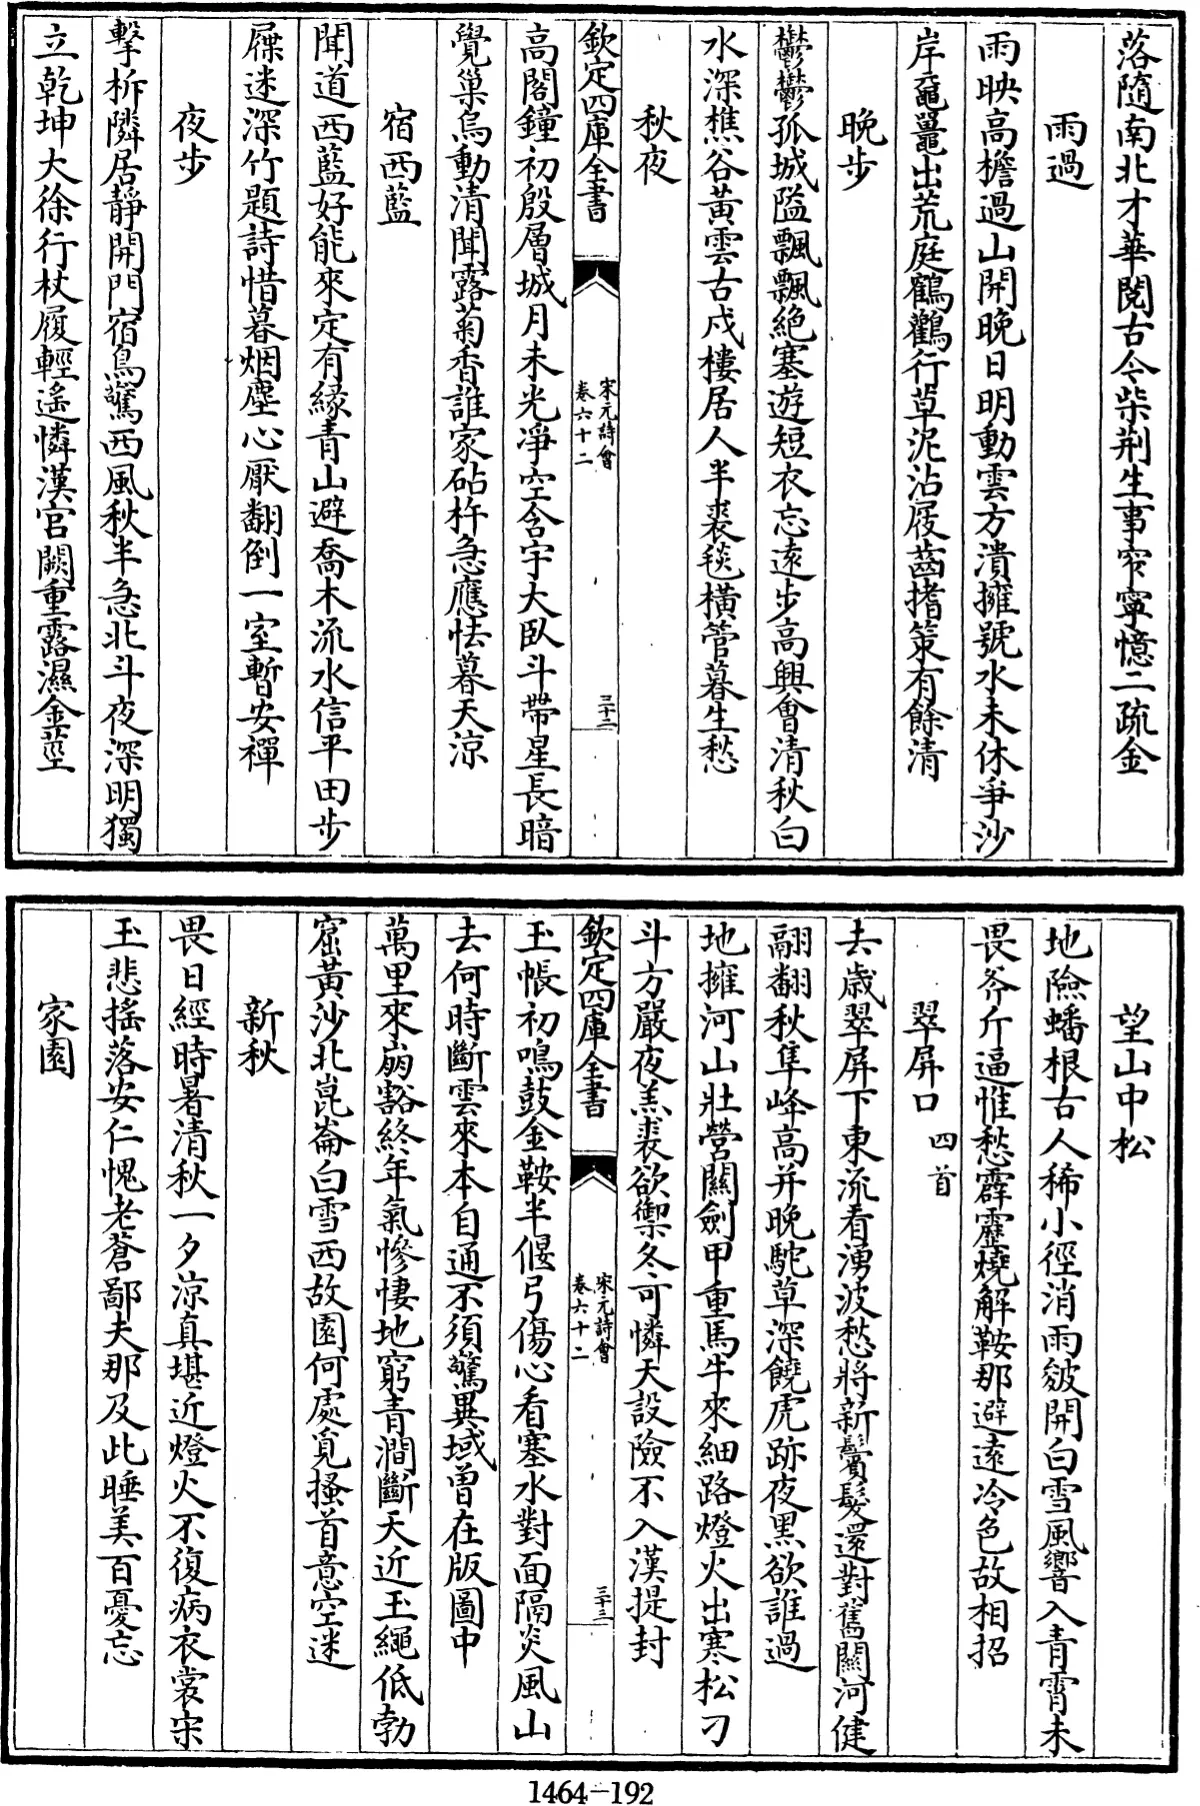 落隨南北才華閱古今柴荆生事窄寧憶二疏金
雨過
雨映高檐過山開晚日明動雲方潰擁號水未休爭沙
岸黿鼉出荒庭鶴鸛行草泥沾履齒搘策有餘清
晚步
鬱鬱孤城隘飄飄絶塞遊短衣忘遠步高興會清秋白
水深樵谷黄雲古戍樓居人半裘毯橫管暮生愁
秋夜
欽定四庫全書
宋元詩會
卷六十二
三十二
高閣鐘初殷層城月未光凈空含宇大臥斗帶星長暗
覺巢烏動清聞露菊香誰家砧杵急應怯暮天涼
宿西藍
聞道西藍好能來定有緣青山避喬木流水信平田步
屧迷深竹題詩惜暮烟塵心厭翻倒一室暫安禪
夜步
擊柝隣居靜開門宿鳥驚西風秋半急北斗夜深明獨
立乾坤大徐行杖履輕遙憐漢宫闕重露濕金莖
望山中松
地險蟠根古人稀小徑消雨皴開白雪風響入青霄未
畏斧斤逼惟愁霹靂燒解鞍那避遠冷色故相招
翠屏口 四首
去歲翠屏下東流看湧波愁將新鬢髮還對舊關河健
翮翻秋隼峰高并晚駝草深饒虎跡夜黑欲誰過
地擁河山壯營關劍甲重馬牛來細路燈火出寒松刁
斗方嚴夜羔裘欲禦冬可憐天設險不入漢提封
欽定四庫全書
宋元詩會
卷六十二
三十三
玉帳初鳴鼓金鞍半偃弓傷心看塞水對面隔炎風山
去何時斷雲來本自通不須驚異域曾在版圖中
萬里來崩豁終年氣慘悽地窮青澗斷天近玉繩低勃
窟黄沙北崑崙白雪西故園何處覓搔首意空迷
新秋
畏日經時暑清秋一夕涼真堪近燈火不復病衣裳宋
玉悲搖落安仁愧老蒼鄙夫那及此睡美百憂忘
家園
1464-192